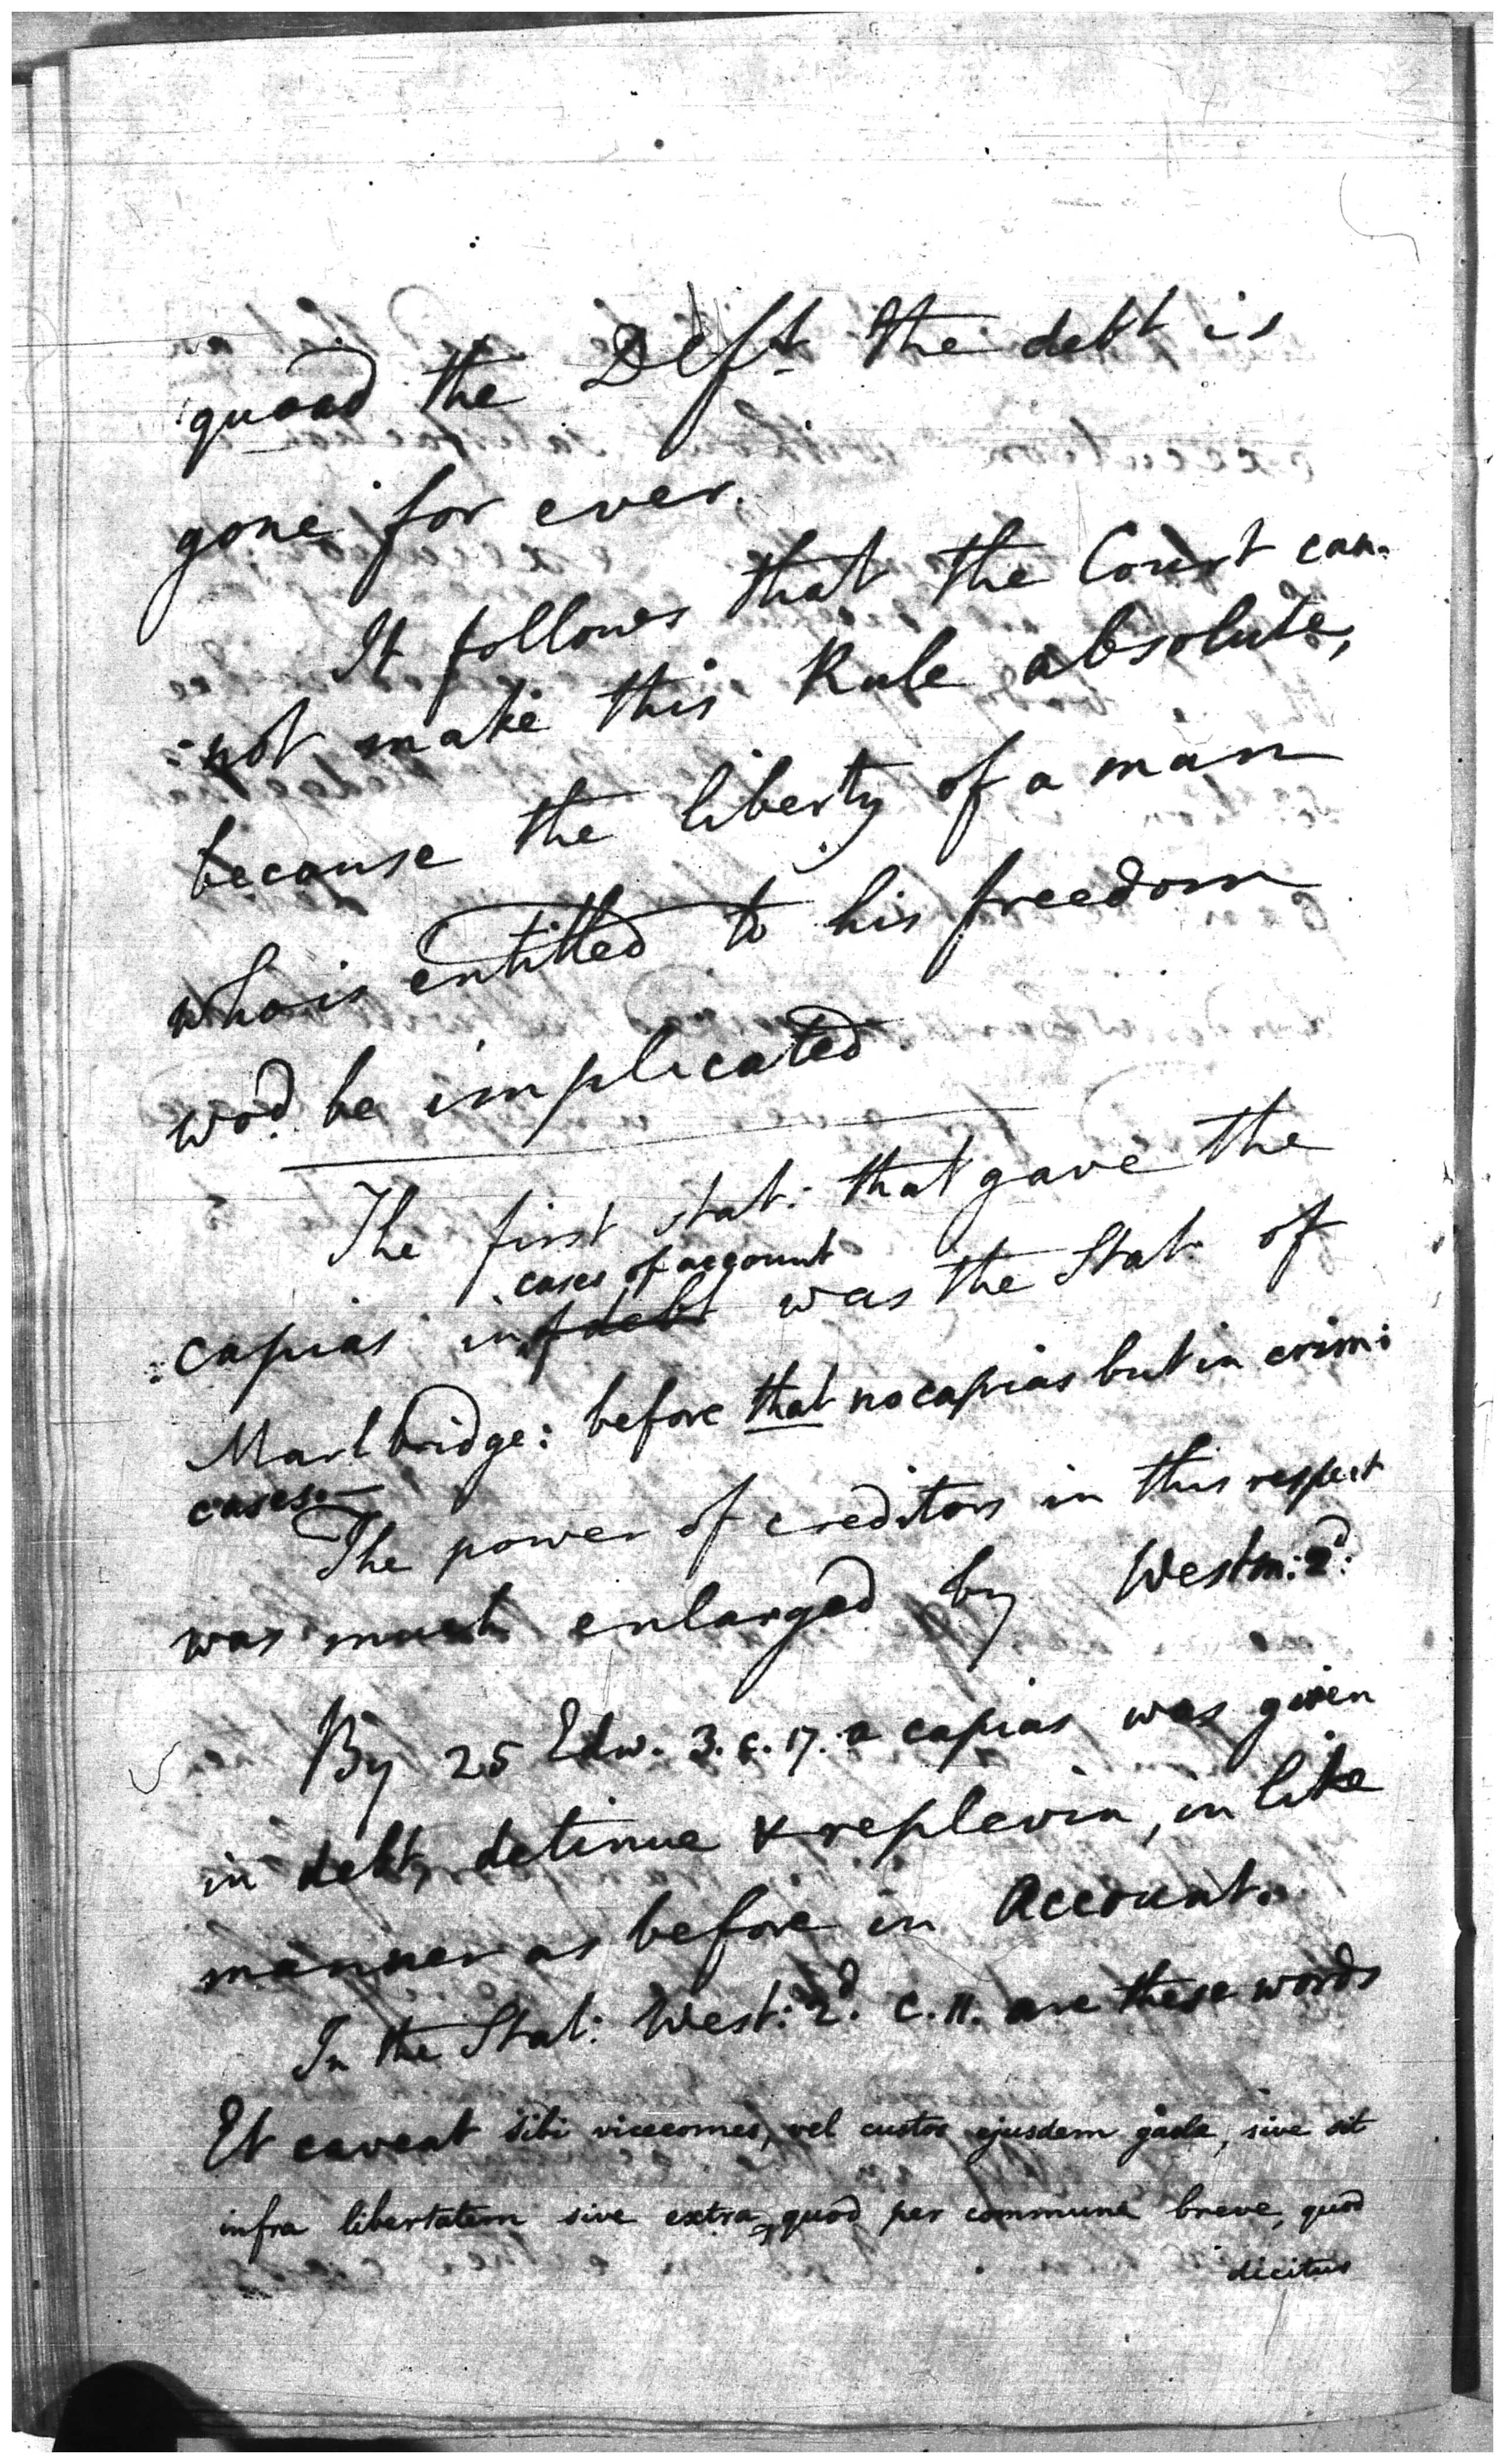 quoad the Deft. the debt is
gone for ever.
It follows that the Court can-
-not make this Rule absolute,
because the liberty of a man
who is entitled to his freedom
wod. be implicated
The first stat: that gave the
cases of account
capias in debt was the Stat. of
Marlbridge: before that no capias but in crim:
cases.—
The power of creditors in this respect
was much enlarged by Westm: 2d.
By 25 Edw. 3. c. 17. a capias was given
in debt, detinue & replevin, in like
manner as before in Account.
In the Stat: West: 2d. c. 11. are these words
Et caveat sibi vicecomes, vel custos ejusdem gaole, sive sit
infra libertatem sive extra, quod per commune breve, quod
dicitur